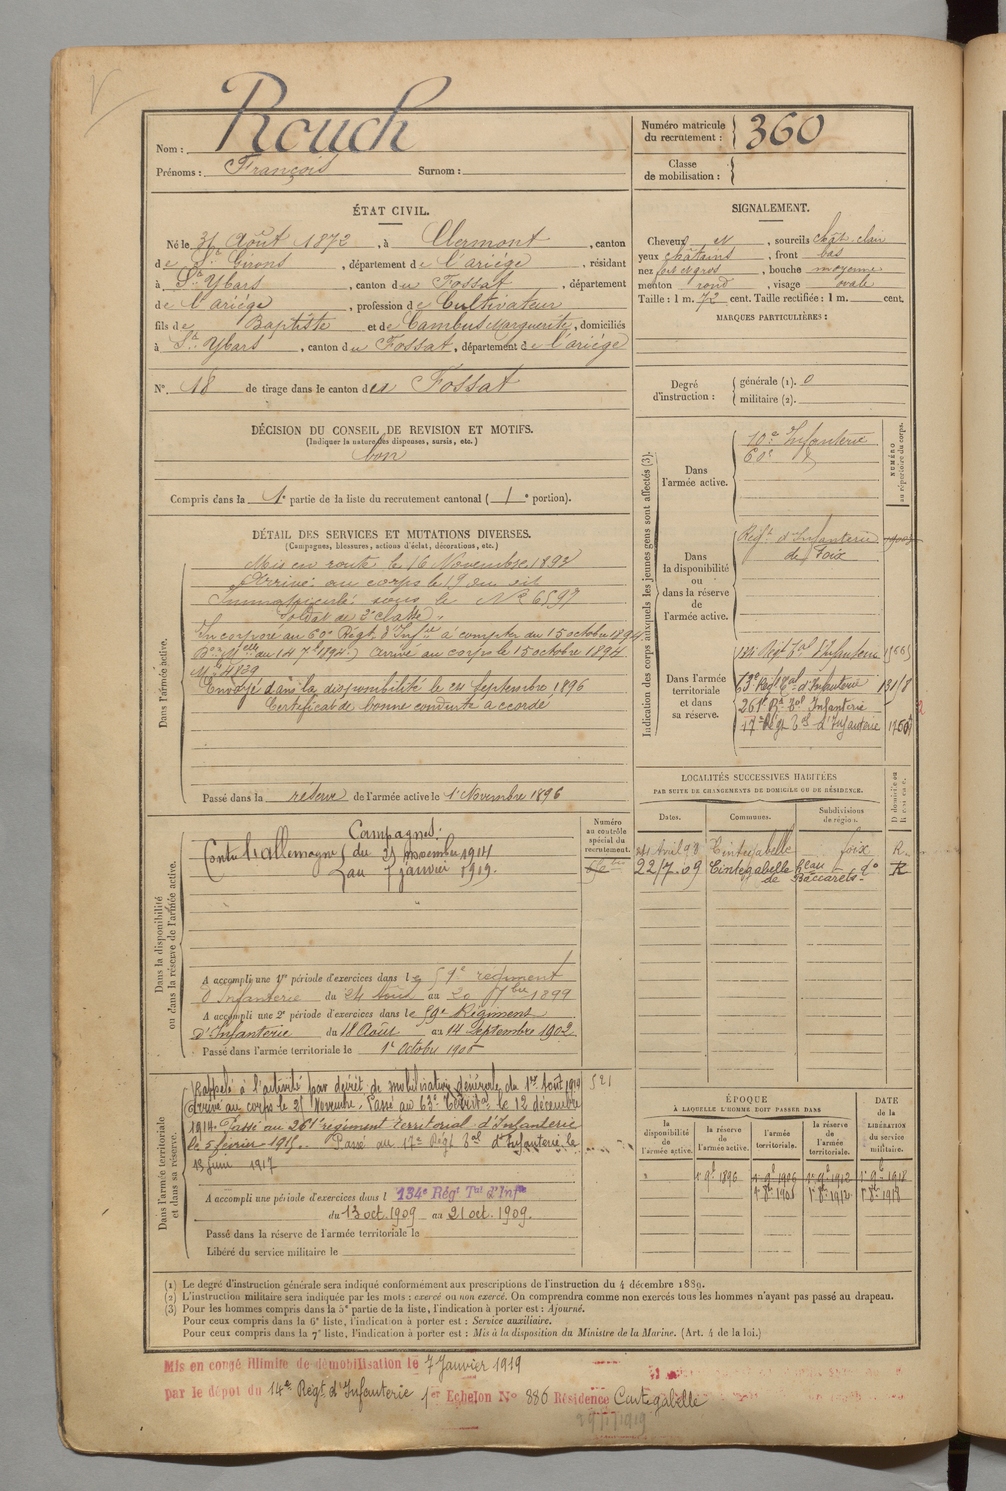 Rouch
Nom :
Prénoms : François Surnom :
Numéro matricule du recrutement : 360
Classe de mobilisation :
ÉTAT CIVIL.
Né le 31 Août 1872, à Clermont, canton
de St Girons, département de l'ariége, résidant
à St Ybars, canton du Fossat, département
de l'ariége, profession de Cultivateur
fils de Baptiste et de Cambus Marguerite, domiciliés
à St Ybars, canton du Fossat, département de l'ariége
N° 18 de tirage dans le canton de Fossat
DÉCISION DU CONSEIL DE REVISION ET MOTIFS.
(Indiquer la nature des dispenses, sursis, etc.)
bon
Compris dans la 1e partie de la liste du recrutement cantonal ( 1e portion).
SIGNALEMENT.
Cheveux et, sourcils chât. clair
yeux châtains, front bas
nez gros, bouche moyenne
menton rond, visage ovale
Taille : 1 m. 72 cent. Taille rectifiée : 1 m. cent.
MARQUES PARTICULIÈRES :
Degré d'instruction :
générale (1). 0
militaire (2).
DÉTAIL DES SERVICES ET MUTATIONS DIVERSES.
(Campagnes, blessures, actions d'éclat, décorations, etc.)
Dans l'armée active.
Mis en route le 16 Novembre 1893
Arrivé au corps le 19 du dit
Immatriculé sous le N° 6597
Soldat de 2e classe.
Incorporé au 60e Régt d'Infie à compter du 15 octobre 1894
arrivé au corps le 15 octobre 1894
Mle 4839
Envoyé dans la disponibilité le 24 Septembre 1896
Certificat de bonne conduite accordé
Passé dans la réserve de l'armée active le 1 Novembre 1896
Indication des corps auxquels les jeunes gens sont affectés (3).
NUMÉRO au répertoire du corps.
Dans l'armée active.
10e Infanterie
60e d°
Dans la disponibilité ou dans la réserve de l'armée active.
Régt d'Infanterie
de Foix
Dans l'armée territoriale et dans sa réserve.
134 Régt Tal d'Infanterie
63e Régt Tal d'Infanterie 131/8
261e Rt Tal Infanterie
17e Régt Tal d'Infanterie
LOCALITÉS SUCCESSIVES HABITÉES
PAR SUITE DE CHANGEMENTS DE DOMICILE OU DE RÉSIDENCE.
Dates. Communes. Subdivisions de région. D domicile ou R résidence.
24 Avril 98 Cintegabelle foix R.
22/7.09 Cintegabelle d° R
de Baccarets
Dans la disponibilité ou dans la réserve de l'armée active.
Numéro au contrôle spécial du recrutement.
Campagnes :
Contre l'allemagne du 21 novembre 1914
au 7 janvier 1919.
A accompli une 1re période d'exercices dans le 59e régiment
d'Infanterie du 24 août au 20 7bre 1899
A accompli une 2e période d'exercices dans le 59e Régiment
d'Infanterie du 18 Août au 14 Septembre 1902
Passé dans l'armée territoriale le 1er Octobre 1906
Dans l'armée territoriale et dans sa réserve.
Rappelé à l'activité par décret de mobilisation générale du 1er août 1914 521
Arrivé au corps le 21 Novembre. Passé au 63e Territal le 12 décembre
1914. Passé au 261e régiment territorial d'Infanterie
le 5 février 1915. Passé au 17e Régt Tal d'Infanterie le
13 Juin 1917
A accompli une période d'exercices dans l 134e Régt Tal d'Infie
du 13 oct. 1909 au 21 oct. 1909.
Passé dans la réserve de l'armée territoriale le
Libéré du service militaire le
ÉPOQUE À LAQUELLE L'HOMME DOIT PASSER DANS
DATE de la LIBÉRATION du service militaire.
la disponibilité de l'armée active. la réserve de l'armée active. l'armée territoriale. la réserve de l'armée territoriale.
1 9e 1896 1er 9e 1906 1er 9e 1912 1er 9e 1918
1er 8e 1906 1er 8e 1912 1er 8e 1918
(1) Le degré d'instruction générale sera indiqué conformément aux prescriptions de l'instruction du 4 décembre 1889.
(2) L'instruction militaire sera indiquée par les mots : exercé ou non exercé. On comprendra comme non exercés tous les hommes n'ayant pas passé au drapeau.
(3) Pour les hommes compris dans la 5e partie de la liste, l'indication à porter est : Ajourné.
Pour ceux compris dans la 6e liste, l'indication à porter est : Service auxiliaire.
Pour ceux compris dans la 7e liste, l'indication à porter est : Mis à la disposition du Ministre de la Marine. (Art. 4 de la loi.)
Mis en congé illimité de démobilisation le 7 Janvier 1919
par le dépôt du 14e Régt d'Infanterie 1er Echelon N° 886 Résidence Cintegabelle